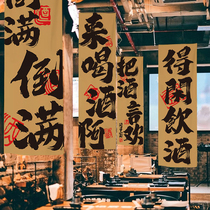 满倒满
来喝酒阿
把酒言欢
得閒飲酒